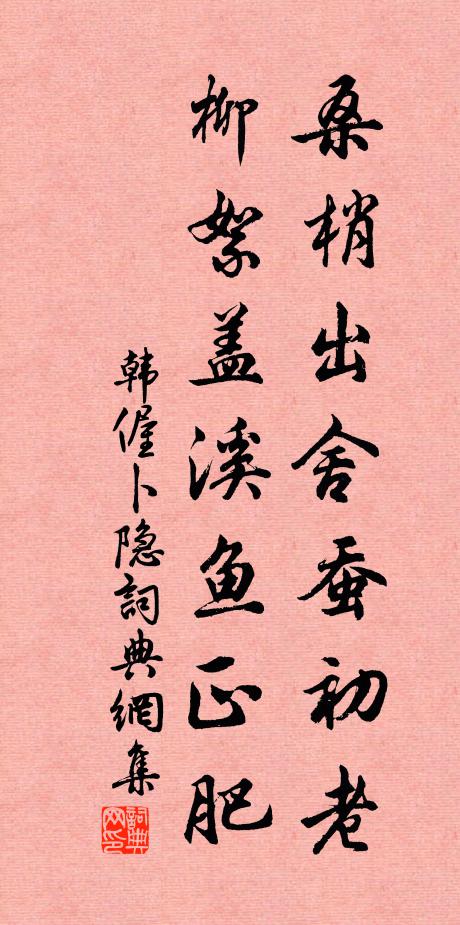 桑梢出舍蚕初老
柳絮盖溪鱼正肥
韩偓卜隐词典網集
詞典网印